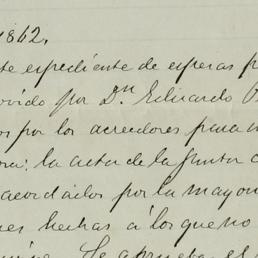 1862.
te expediente de esperas p
ovido por Dn Eduardo
os por los acreedores para
ra: la acta de la Junta
acordadas por la mayo
es hechas á los que no
Se aprueba el